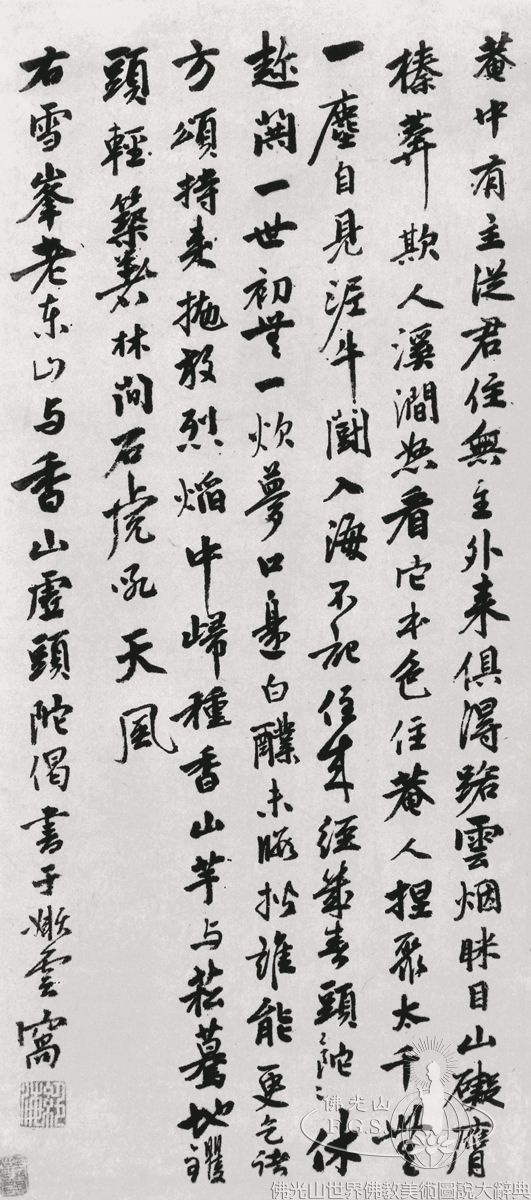 菴中有主從君住無主外來俱得踞雲烟眯目山礙膺
榛莽欺人溪澗怒看它本色住菴人揑聚太千無
一塵自見泥牛鬪入海不記住來經幾春頭陀〻休
趂閙一世初無一炊夢口邊白醭未暇誰能更乞諸
方頌持來拋放烈焰中歸種香山芋与菘驀地钁
頭輕築著林間石虎吼天風
右雪峯老東山与香山虛頭陀偈書于嬾雲窩
佛光山
F.G.S.
佛光山世界佛教美術圖說大辭典